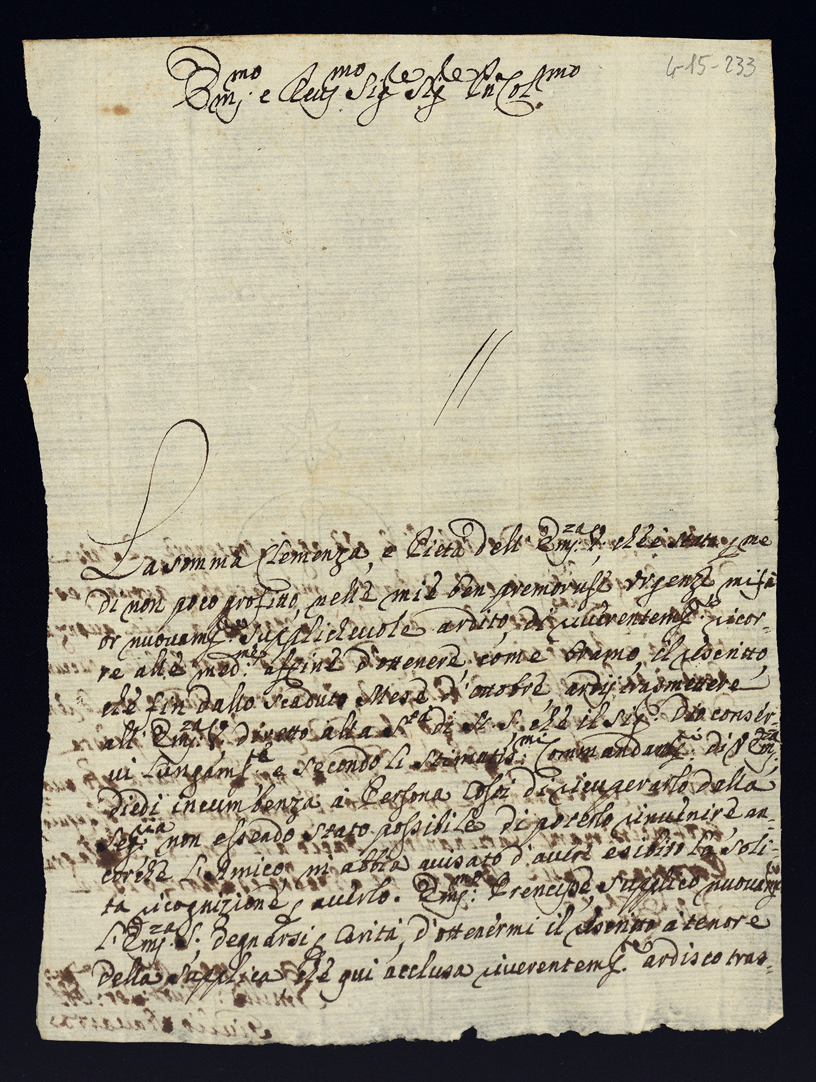 4-15-233
Em.mo e Rev.mo Sig.re Sig.re P.ne Col.mo
La somma Clemenza, e Pietà dell' Em.za V., che è stata p me
di non poco profitto, nelle mie ben premorose urgenze mi fa
or nuovam.te supplichevole ardito, di riverentem.te ricor-
re alle med.me affine d'ottenere come bramo, il rescritto,
che fin dallo scaduto Mese d'ottobre ardij trasmettere
all' Em.za V. diretto alla S.tà di N. S. che il Sig.re Dio conser-
vi lungam.te e secondo li stimatis.mi Commandam.ti di V. Em.za
diedi incumbenza à Persona costì di ricuperarlo dalla
Seg.ria non essendo stato possibile di poterlo rinvenire an-
corche l'Amico mi abbia avisato d'avere esibito la soli-
ta ricognizione p averlo. Em.mo Prencipe, supplico nuovam.te
l'Em.za V. degnarsi p Carità, d'ottenermi il rescritto a tenore
della supplica che qui acclusa riverentem.te ardisco tras-